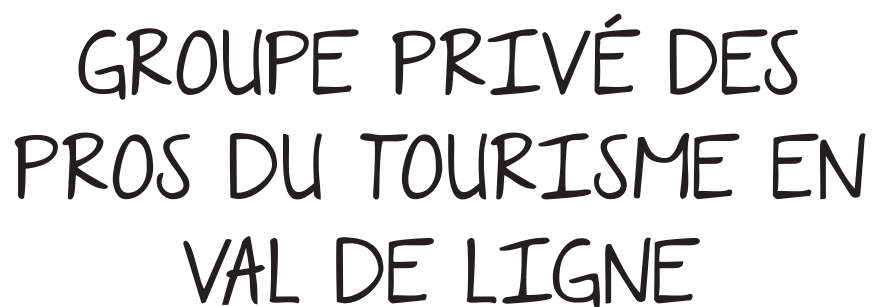 GROUPE PRIVÉ DES
PROS DU TOURISME EN
VAL DE LIGNE